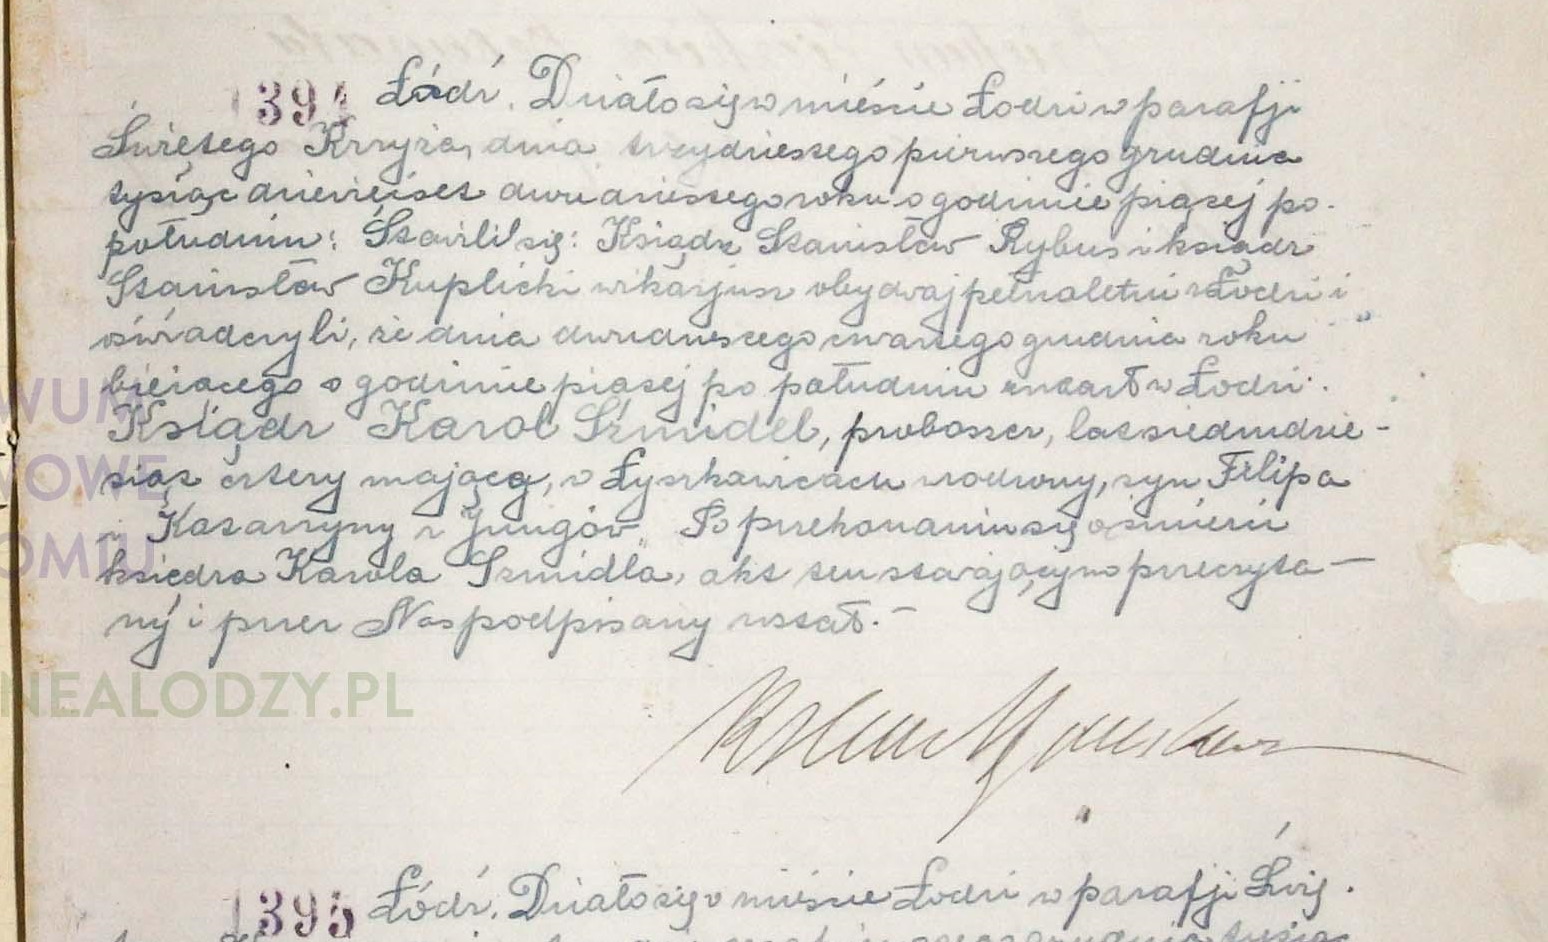 1394 Łódź. Działo się w mieście Łodzi w parafji
Świętego Krzyża, dnia trzydziestego pierwszego grudnia
tysiąc dziewięćset dwudziestego roku o godzinie piątej po-
południu: Stawili się: Ksiądz Stanisław Rybus i ksiądz
Stanisław Kuplicki wikarjusz obydwaj pełnoletni z Łodzi i
oświadczyli, że dnia dwudziestego czwartego grudnia roku
bieżącego o godzinie piątej po południu zmarł w Łodzi:
Ksiądz Karol Szmidel, proboszcz, lat siedmdzie-
siąt cztery mający, w Łyszkowicach urodzony, syn Filipa
i Katarzyny z Jungów. Po przekonaniu się o śmierci
księdza Karola Szmidla, akt ten stawającym przeczyta-
ny i przez Nas podpisany został.-
WUM
WOWE
OMIU
NEALODZY.PL
1395 Łódź. Działo się w mieście Łodzi w parafji Świę.